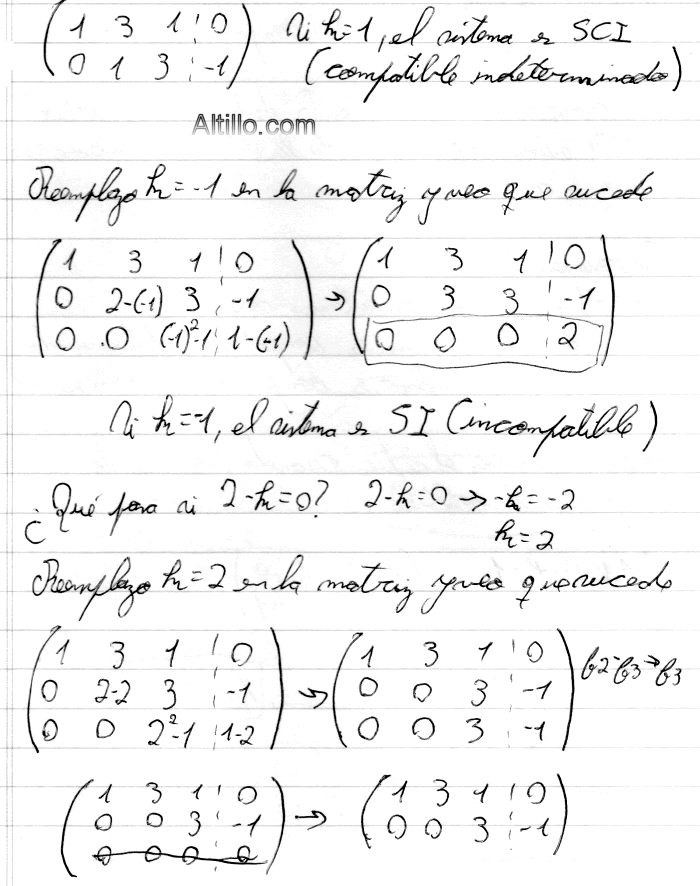 ( 1 3 1 ¦ 0 ) Si h=1, el sistema es SCI
( 0 1 3 ¦ -1 ) (compatible indeterminado)
Altillo.com
Reemplazo h=-1 en la matriz y veo que sucede
( 1 3 1 ¦ 0 ) → ( 1 3 1 ¦ 0 )
( 0 2-(-1) 3 ¦ -1 ) ( 0 3 3 ¦ -1 )
( 0 0 (-1)²-1 ¦ 1-(-1) ) ( 0 0 0 ¦ 2 )
Si h=-1, el sistema es SI (incompatible)
¿Qué pasa si 2-h=0? 2-h=0 → -h=-2
h=2
Reemplazo h=2 en la matriz y veo que sucede
( 1 3 1 ¦ 0 ) → ( 1 3 1 ¦ 0 ) f2-f3→f3
( 0 2-2 3 ¦ -1 ) ( 0 0 3 ¦ -1 )
( 0 0 2²-1 ¦ 1-2 ) ( 0 0 3 ¦ -1 )
( 1 3 1 ¦ 0 ) → ( 1 3 1 ¦ 0 )
( 0 0 3 ¦ -1 ) ( 0 0 3 ¦ -1 )
( 0 0 0 ¦ 0 )